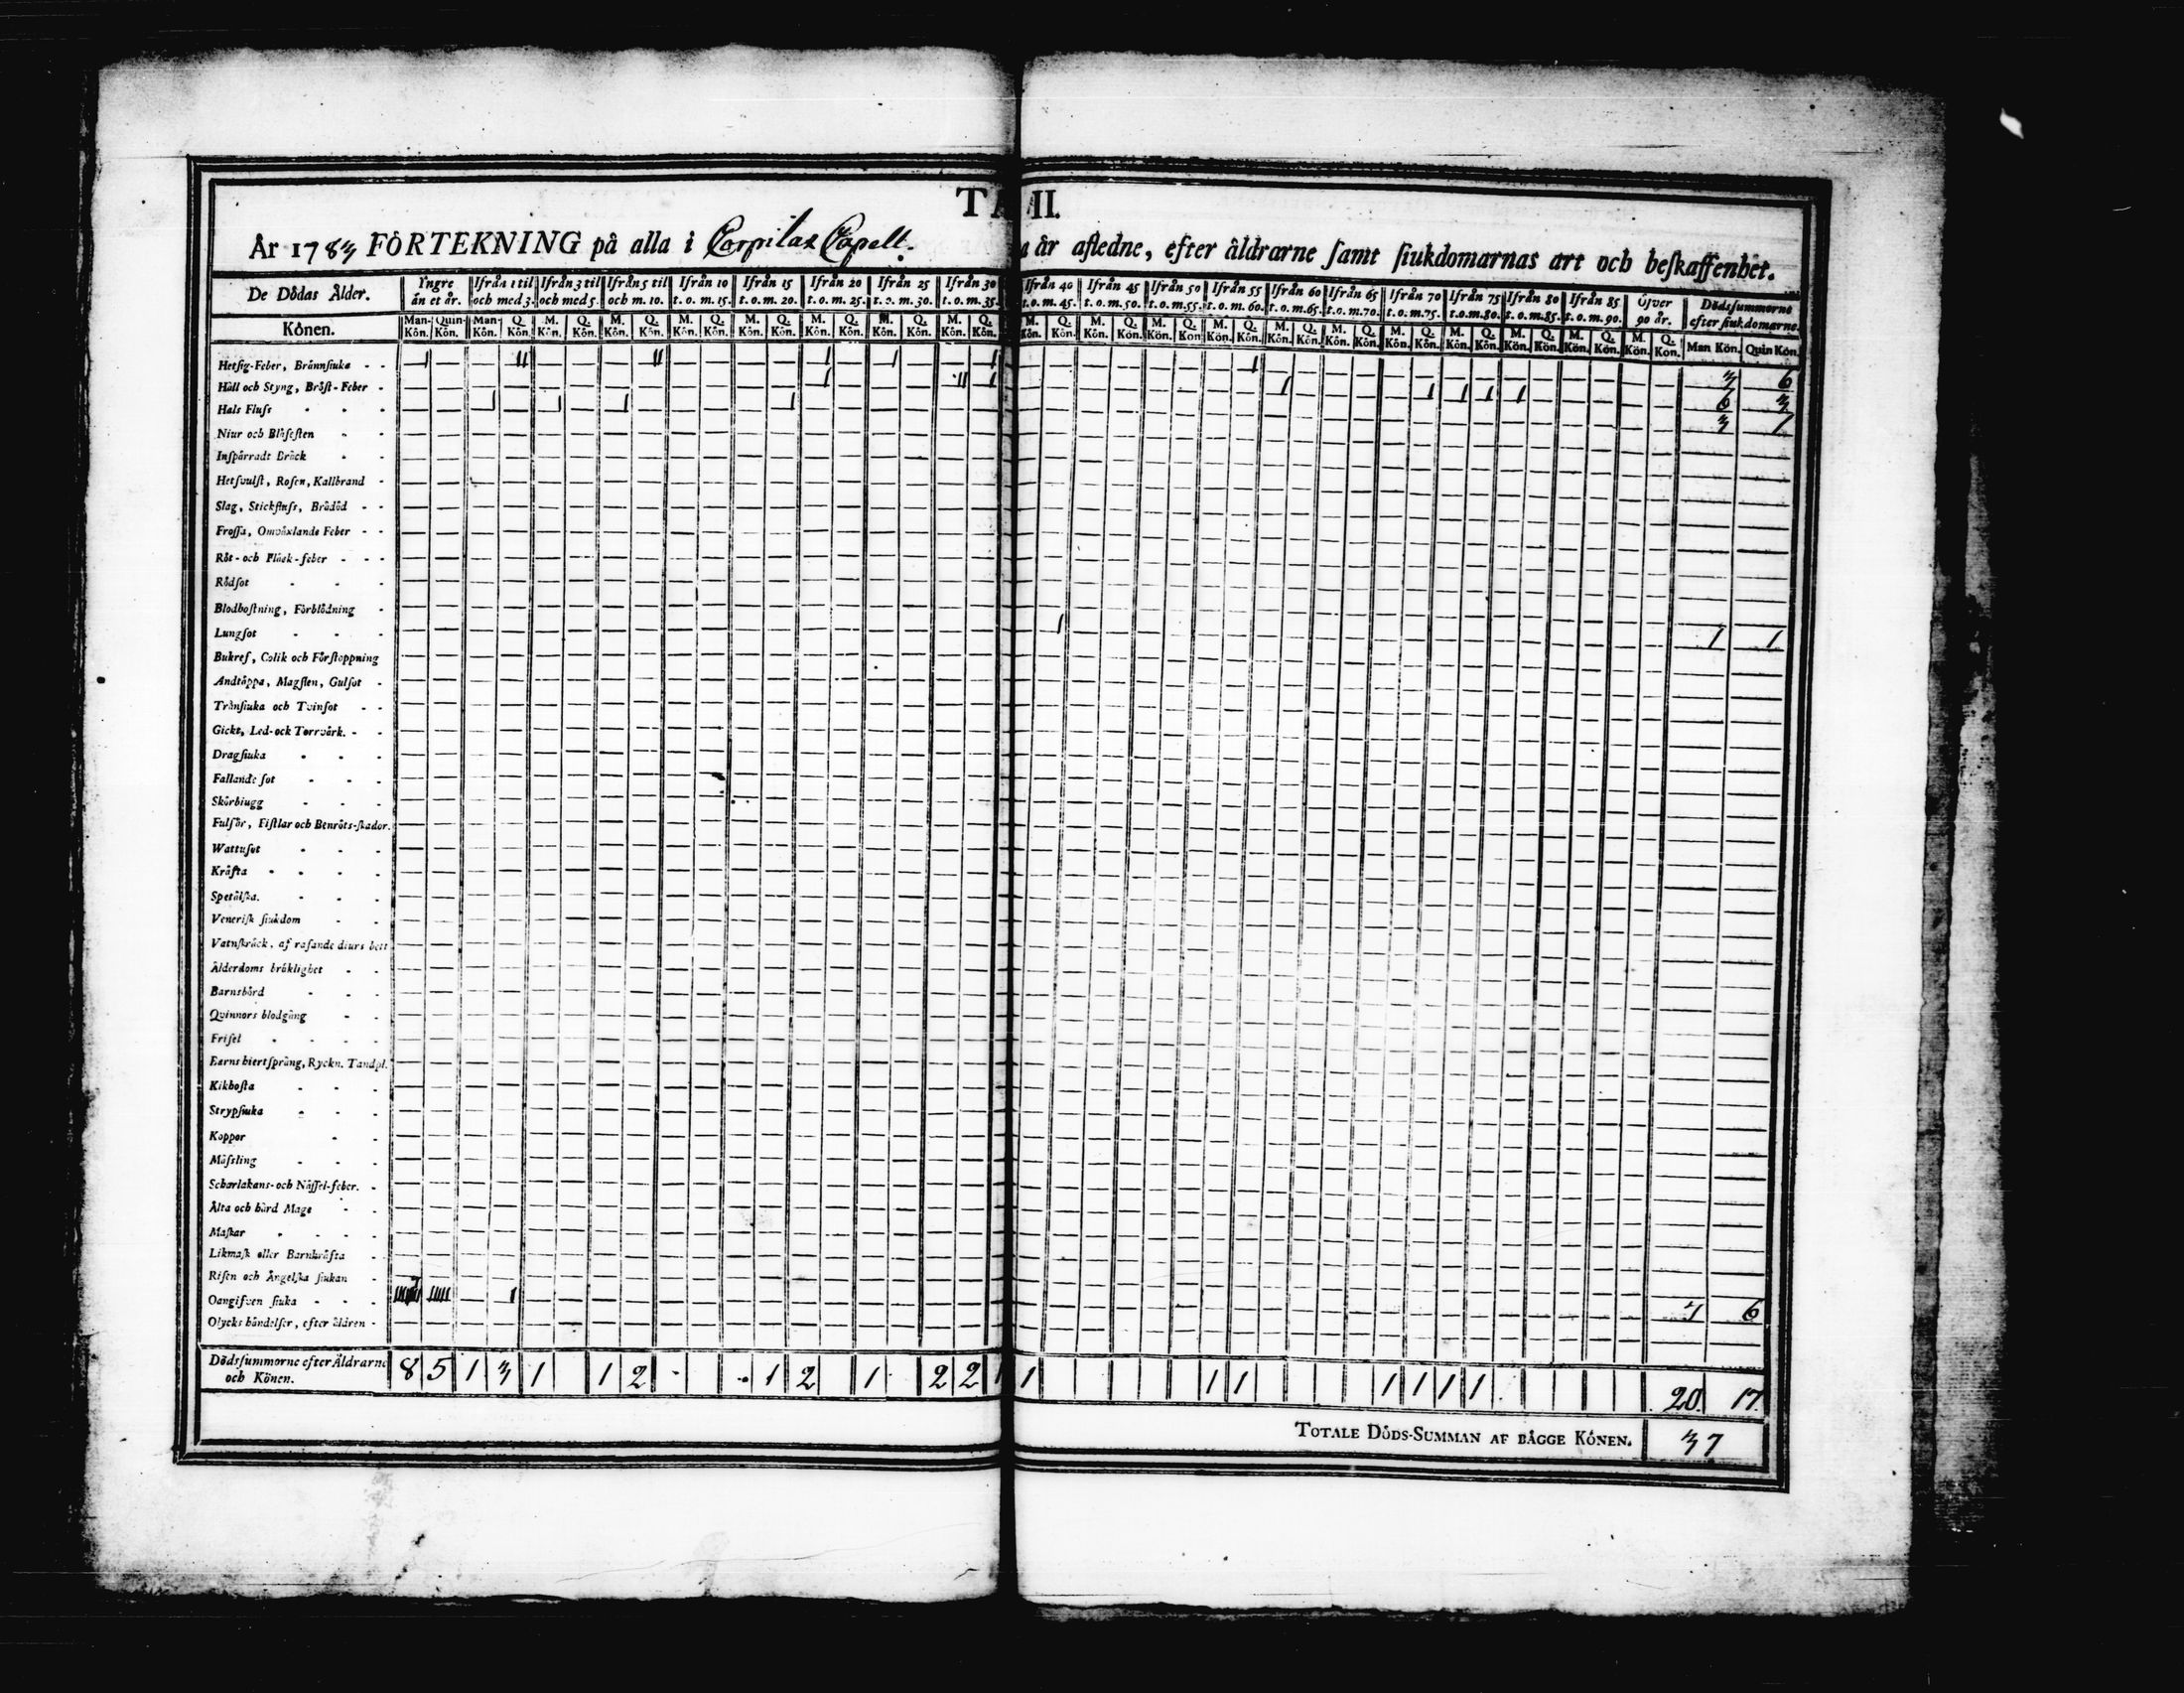 TA II.
År 1783 FÖRTEKNING på alla i Corpilax Capell. a år afledne, efter åldrarne samt siukdomarnas art och beskaffenhet.
De Dödas Ålder. Yngre än et år. Ifrån 1 til och med 3. Ifrån 3 til och med 5. Ifrån 5 til och m. 10. Ifrån 10 t. o. m. 15. Ifrån 15 t. o. m. 20. Ifrån 20 t. o. m. 25. Ifrån 25 t. o. m. 30. Ifrån 30 t. o. m. 35. Ifrån 40 t. o. m. 45. Ifrån 45 t. o. m. 50. Ifrån 50 t. o. m. 55. Ifrån 55 t. o. m. 60. Ifrån 60 t. o. m. 65. Ifrån 65 t. o. m. 70. Ifrån 70 t. o. m. 75. Ifrån 75 t. o. m. 80. Ifrån 80 t. o. m. 85. Ifrån 85 t. o. m. 90. Öfver 90 år. Dödssummorne efter siukdomarne.
Könen. Man-Kön. Quin-Kön. Man-Kön. Q. Kön. M. Kön. Q. Kön. M. Kön. Q. Kön. M. Kön. Q. Kön. M. Kön. Q. Kön. M. Kön. Q. Kön. M. Kön. Q. Kön. M. Kön. Q. Kön. M. Kön. Q. Kön. M. Kön. Q. Kön. M. Kön. Q. Kön. M. Kön. Q. Kön. M. Kön. Q. Kön. M. Kön. Q. Kön. M. Kön. Q. Kön. M. Kön. Q. Kön. M. Kön. Q. Kön. M. Kön. Q. Kön. M. Kön. Q. Kön. Man Kön. Quin Kön.
Hetsig-Feber, Brännsiuka 1 11 11 1 1 1 1 3 6
Håll och Styng, Bröst-Feber 1 11 1 1 1 1 1 1 6 3
Hals Fluss 1 1 1 1 3 1
Niur och Blåsesten
Inspärradt Bråck
Hetsvulst, Rosen, Kallbrand
Slag, Stickfluss, Brådöd
Frossa, Omväxlande Feber
Röt- och Fläck-feber
Rödsot
Blodhostning, Förblödning
Lungsot 1 1 1
Bukref, Colik och Förstoppning
Andtäppa, Magsten, Gulsot
Trånsiuka och Tvinsot
Gickt, Led- och Torrvärk.
Dragsiuka
Fallande sot
Skörbiugg
Fulsår, Fistlar och Benröts-skador.
Wattusot
Kräfta
Spetälska.
Venerisk siukdom
Vatnskräck, af rasande diurs bett
Ålderdoms bräklighet
Barnsbörd
Qvinnors blodgång
Frisel
Barns hiertsprång, Ryckn. Tandpl.
Kikhosta
Strypsiuka
Koppor
Mässling
Scharlakans- och Nässel-feber.
Älta och hård Mage
Maskar
Likmask eller Barnkräfta
Risen och Ängelska siukan
Oangifven siuka 7 11111 1 7 6
Olycks händelser, efter äldren
Dödssummorne efter Åldrarne och Könen. 8 5 1 3 1 1 2 1 2 1 2 2 1 1 1 1 1 1 1 1 20. 17.
TOTALE DÖDS-SUMMAN AF BÅGGE KÖNEN. 37